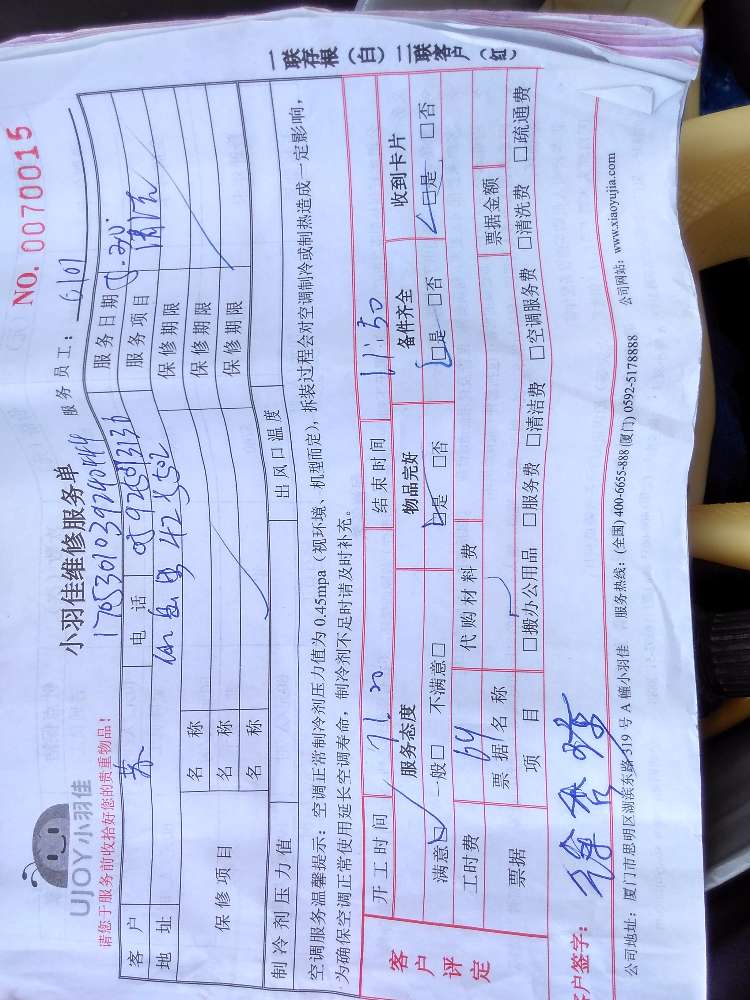 一联存根（白）二联客户（红）
NO. 0070015
UJOY小羽佳
小羽佳维修服务单
服务员工：
请您于服务前收拾好您的贵重物品！
客户 苏 电话 服务日期
地址 服务项目 清洗
保修项目 名称 保修期限
名称 保修期限
名称 保修期限
制冷剂压力值 出风口温度
空调服务温馨提示：空调正常制冷剂压力值为0.45mpa（视环境、机型而定），拆装过程会对空调制冷或制热造成一定影响，
为确保空调正常使用延长空调寿命，制冷剂不足时请及时补充。
客户评定
开工时间 结束时间 11:50
服务态度 物品完好 备件齐全 收到卡片
满意□ 一般□ 不满意□ □是 □否 □是 □否 □是 □否
工时费 64 代购材料费
票据 票据名称 票据金额
项目 □搬办公用品 □服务费 □清洁费 □空调服务费 □清洗费 □疏通费
客户签字：
公司地址：厦门市思明区湖滨东路319号A幢小羽佳 服务热线：(全国) 400-6655-888 (厦门) 0592-5178888 公司网站：www.xiaoyujia.com